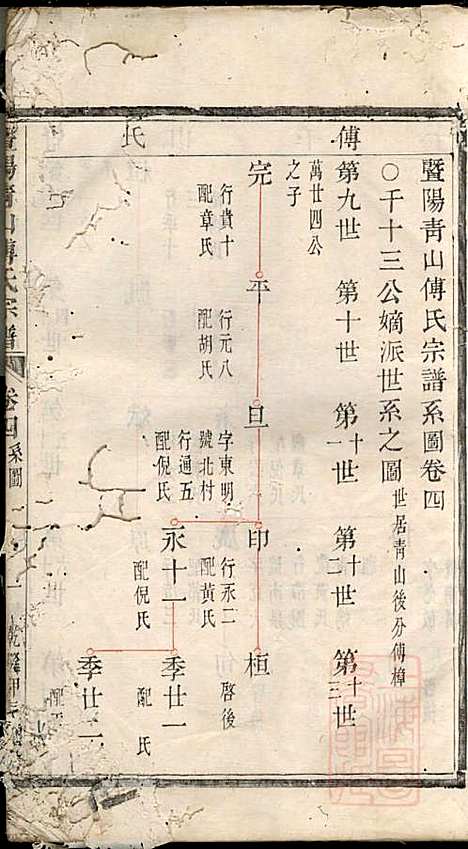 傅氏
暨陽青山傅氏宗譜系圖卷四
○千十三公嫡派世系之圖世居青山後分傅樟
第九世 第十世 第十一世 第十二世 第十三世
萬廿四公之子
完 平 旦 印 桓
行貴十 配章氏
行元八 配胡氏
字東明 號北村 行通五 配倪氏
行永二 配黃氏
啓後
永十一 季廿一
配倪氏 配 氏
季廿二
配
暨陽青山傅氏宗譜 卷四 系圖